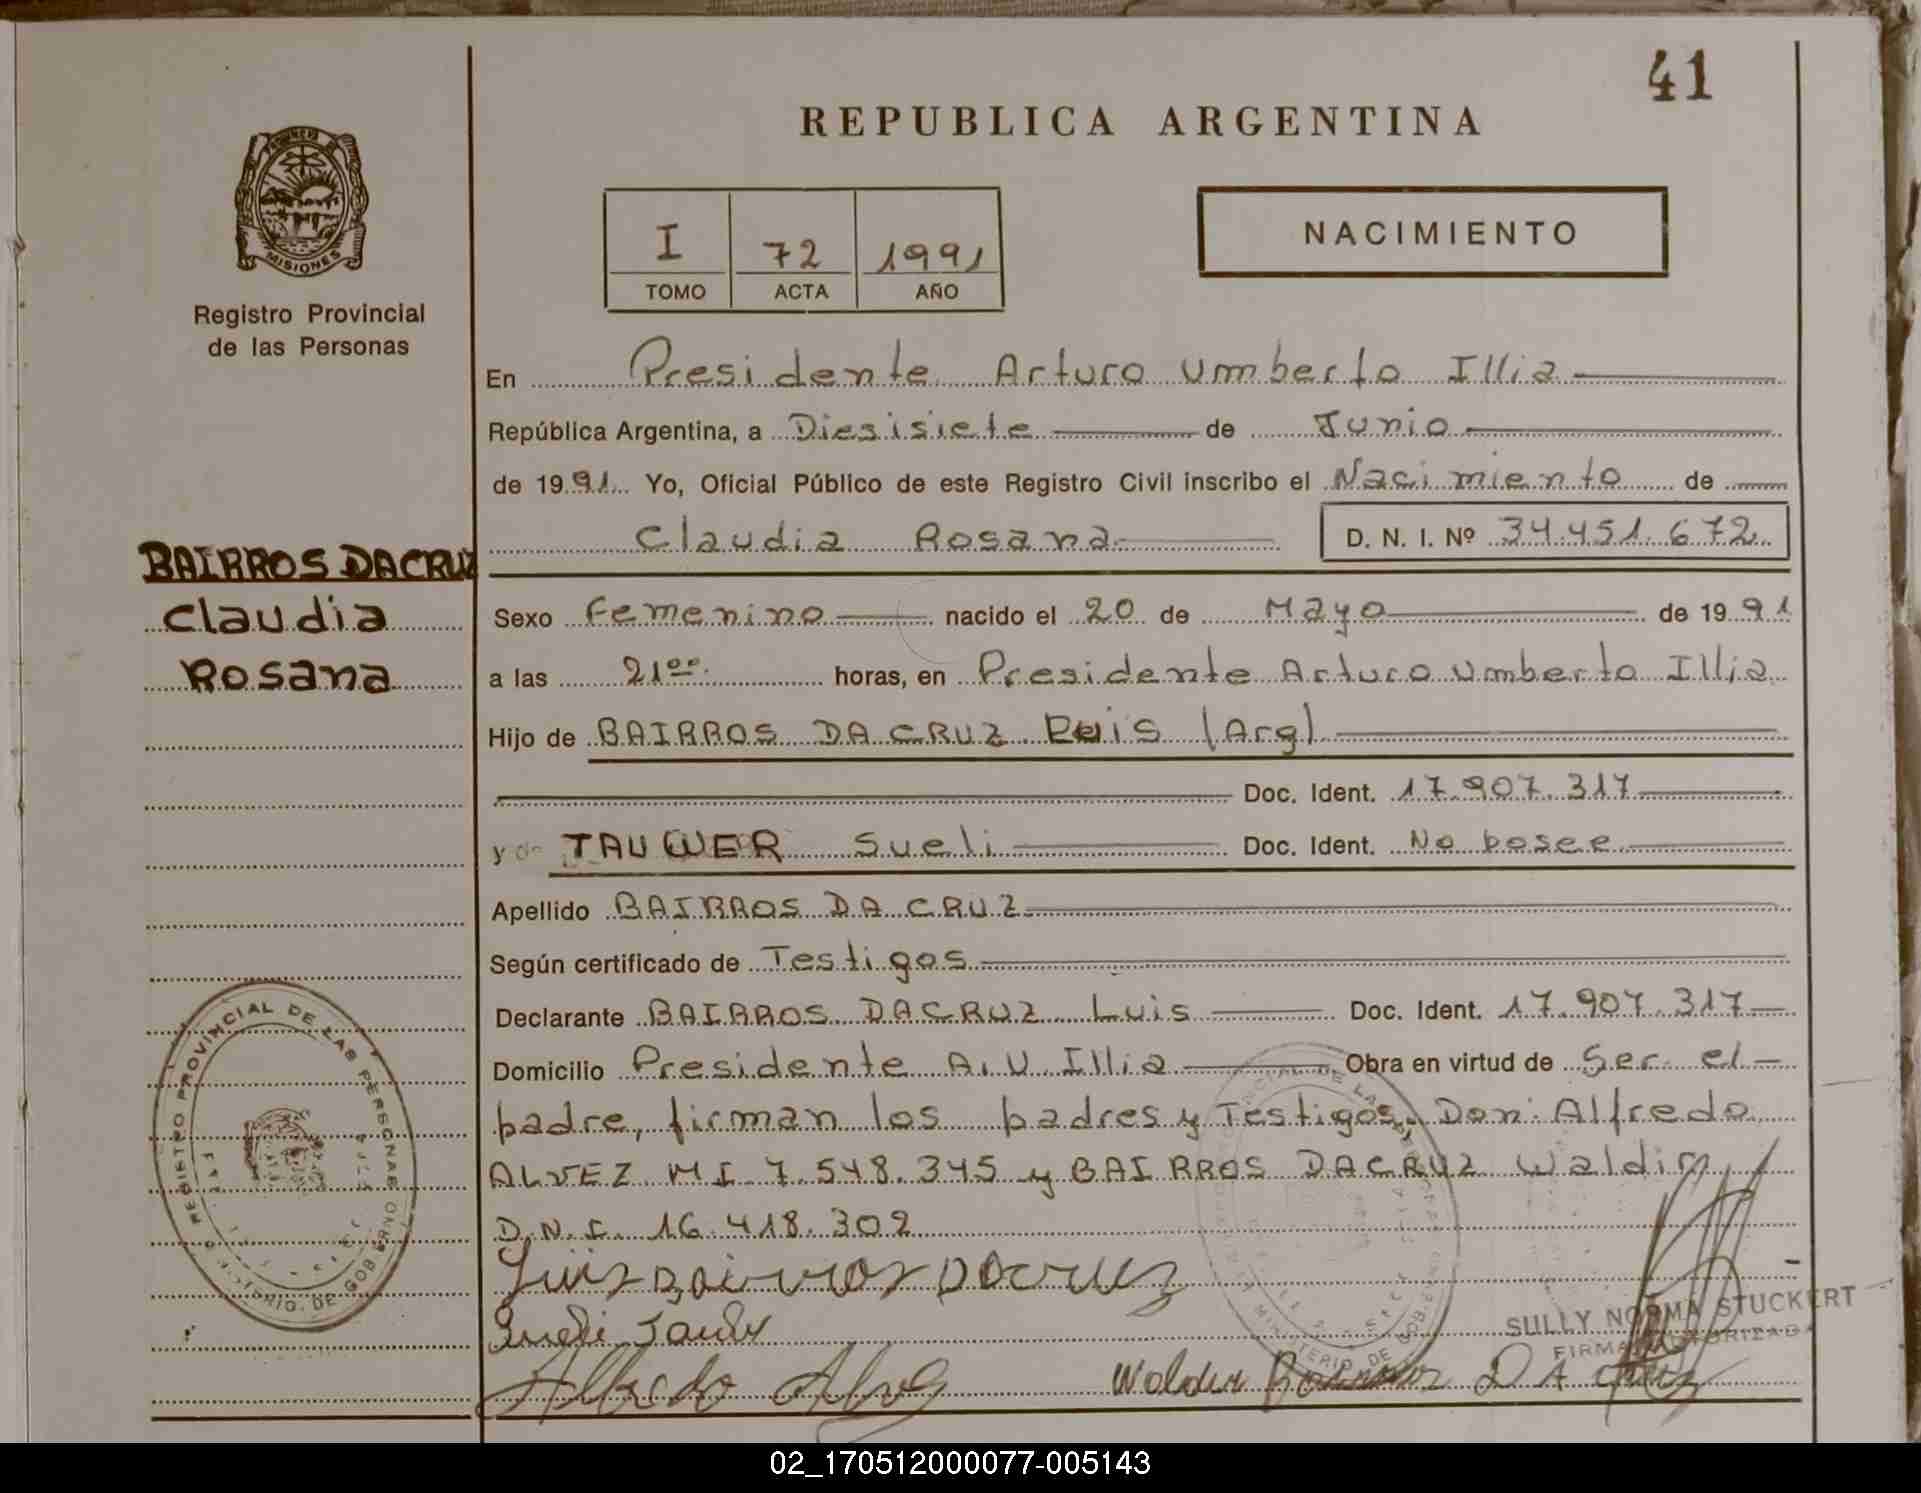 41
REPUBLICA ARGENTINA
MISIONES
Registro Provincial
de las Personas
I 72 1991
TOMO ACTA AÑO
NACIMIENTO
En Presidente Arturo Umberto Illia
República Argentina, a Diesisiete de Junio
de 1991 Yo, Oficial Público de este Registro Civil inscribo el Nacimiento de
Claudia Rosana D. N. I. Nº 34.451.672
BAIRROS DACRUZ
Claudia
Rosana
Sexo Femenino nacido el 20 de Mayo de 1991
a las 21ºº. horas, en Presidente Arturo Umberto Illia
Hijo de BAIRROS DA CRUZ Luis (Arg)
Doc. Ident. 17.907.317
y de TAUWER Sueli Doc. Ident. No posee
Apellido BAIRROS DA CRUZ
Según certificado de Testigos
Declarante BAIRROS DACRUZ Luis Doc. Ident. 17.907.317
Domicilio Presidente A. U. Illia Obra en virtud de Ser el
padre, firman los padres y Testigos, Don: Alfredo
ALVEZ M I 7.548.345 y BAIRROS DACRUZ Waldir
D.N.I. 16.418.302
Luis Bairros DACruz
Sueli
REGISTRO PROVINCIAL DE LAS PERSONAS
MINISTERIO DE GOBIERNO
SULLY NORMA STUCKERT
FIRMA AUTORIZADA
Alfredo Alvez Waldir Bairros DA Cruz
02_170512000077-005143